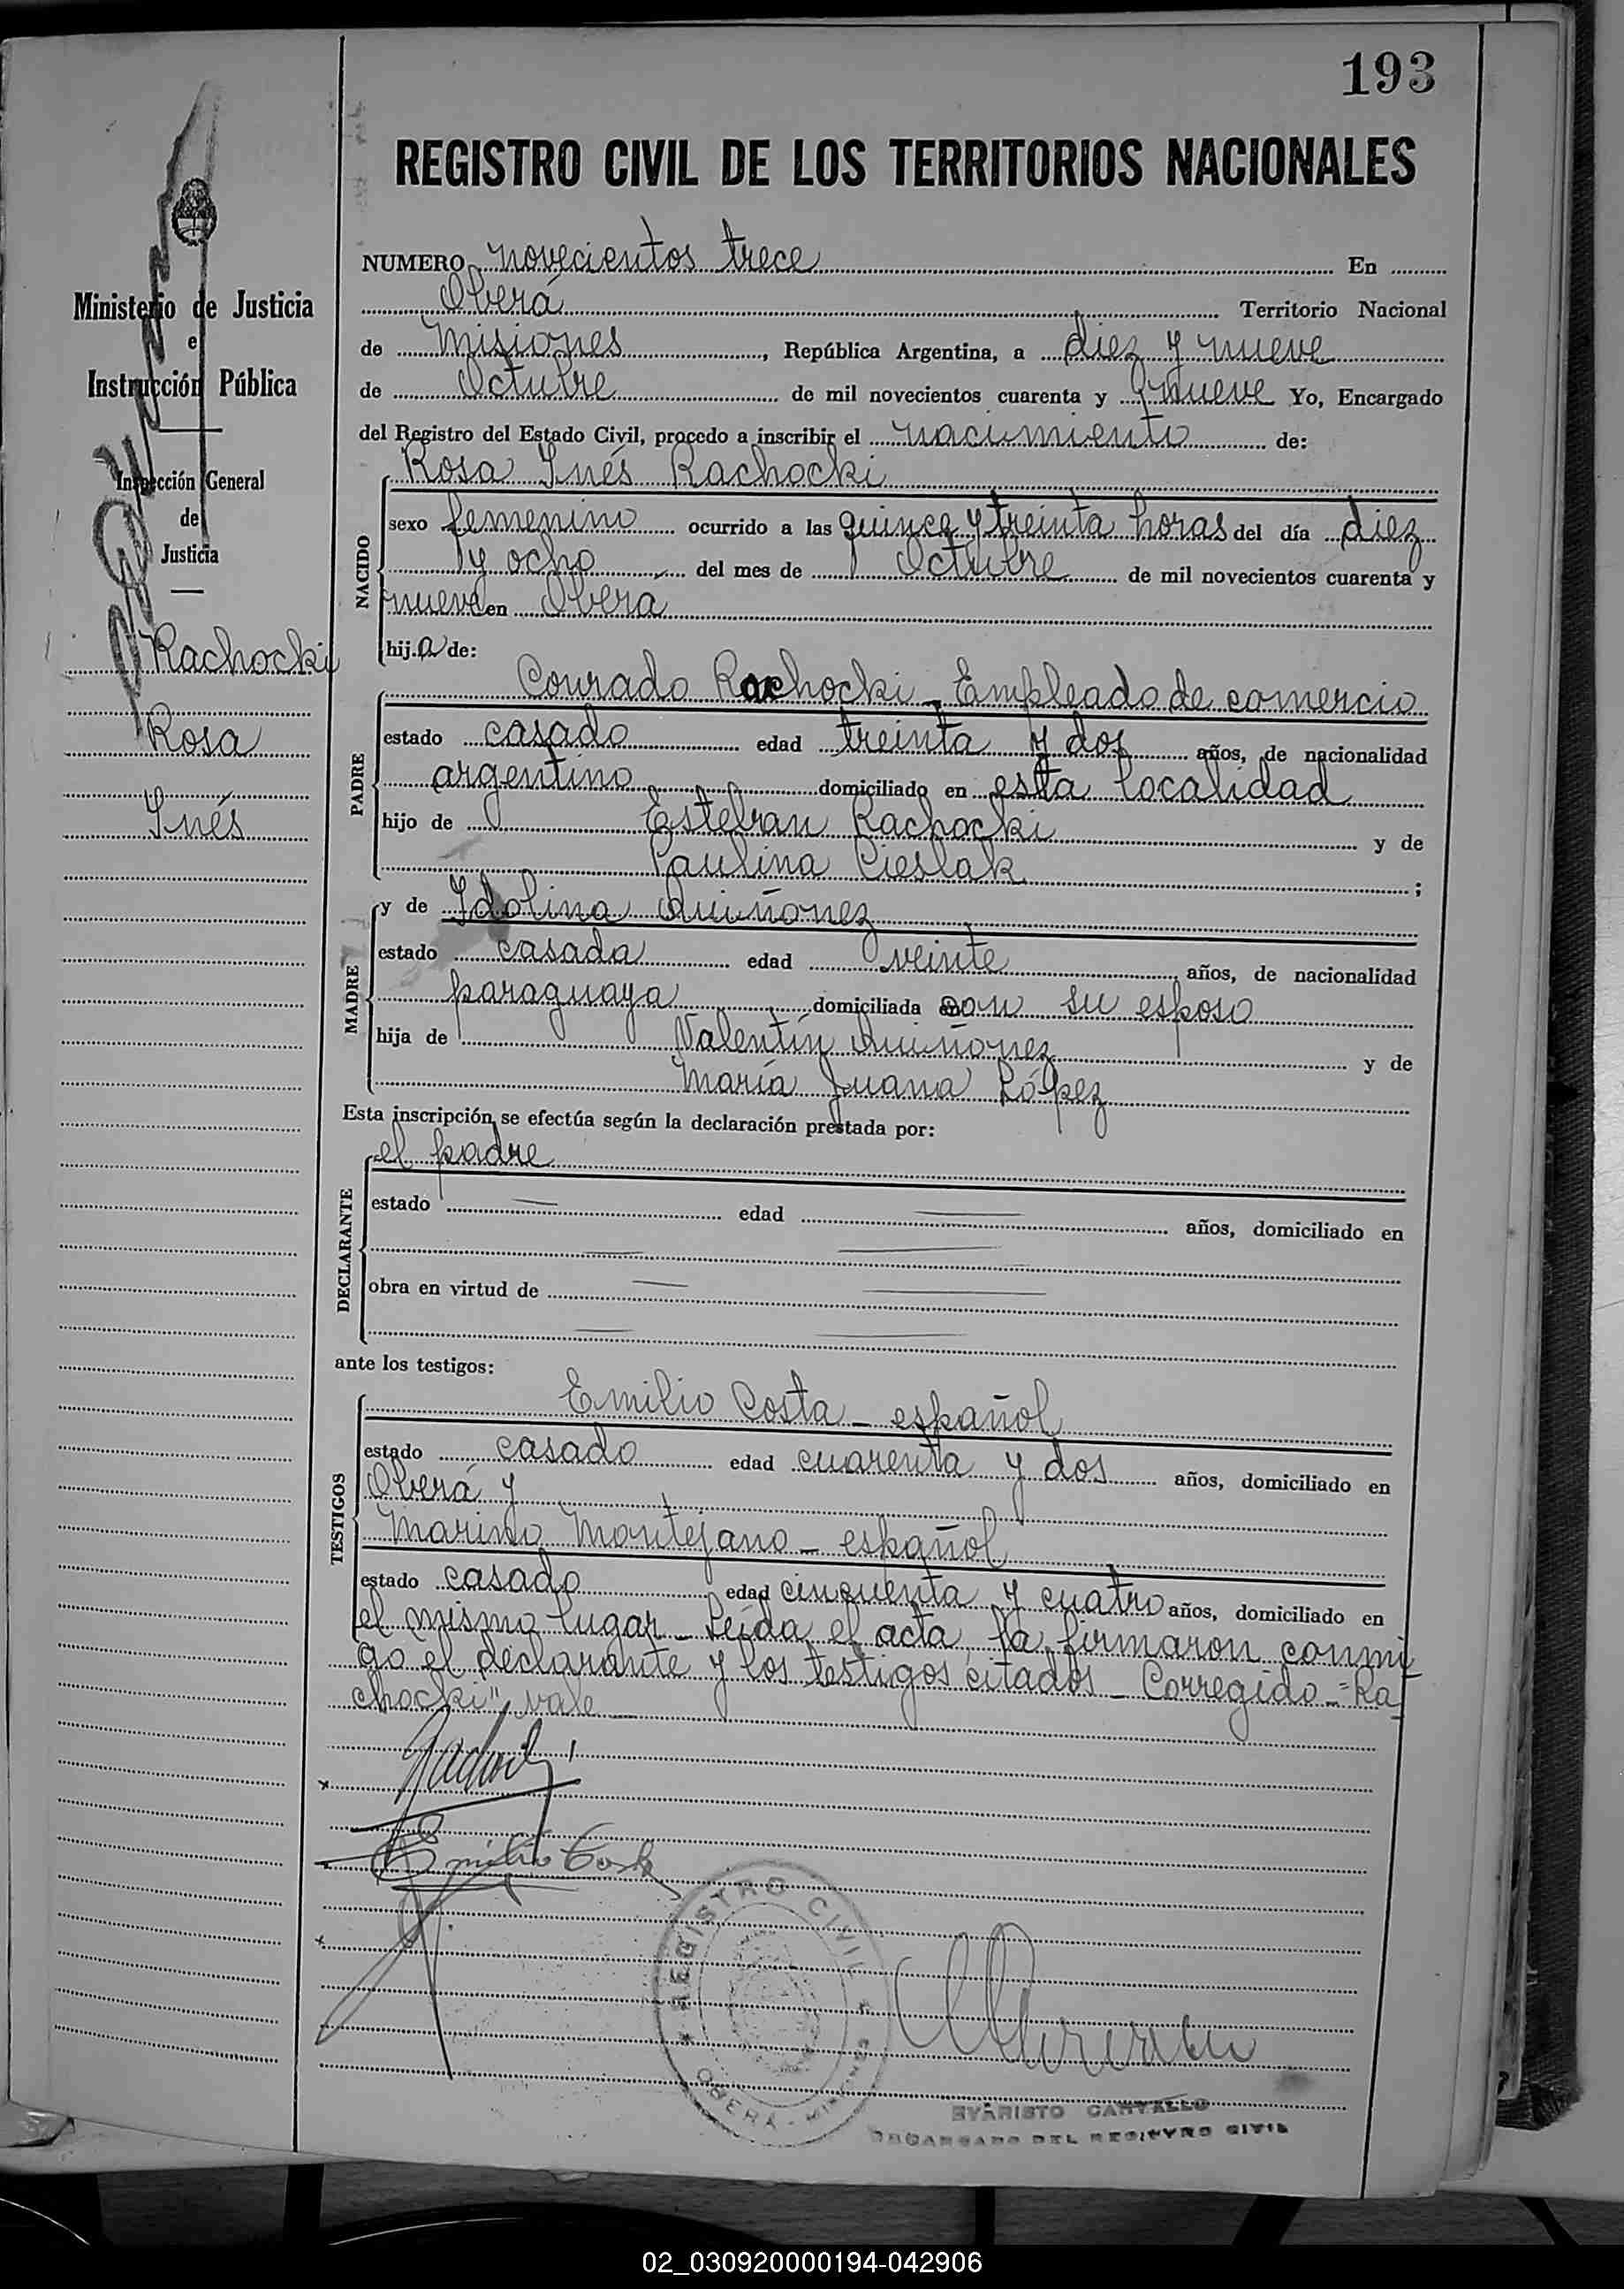 193
REGISTRO CIVIL DE LOS TERRITORIOS NACIONALES
Ministerio de Justicia
e
Instrucción Pública
Inspección General
de
Justicia
Rachocki
Rosa
Inés
NUMERO novecientos trece En
Oberá Territorio Nacional
de Misiones, República Argentina, a diez y nueve
de Octubre de mil novecientos cuarenta y nueve Yo, Encargado
del Registro del Estado Civil, procedo a inscribir el nacimiento de:
Rosa Inés Rachocki
NACIDO
sexo femenino ocurrido a las quince y treinta horas del día diez
y ocho del mes de Octubre de mil novecientos cuarenta y
nueve en Oberá
hija de:
Conrado Rachocki - Empleado de comercio
PADRE
estado casado edad treinta y dos años, de nacionalidad
argentino domiciliado en esta localidad
hijo de Esteban Rachocki y de
Paulina Cieslak ;
y de Idolina Quiñonez
MADRE
estado casada edad veinte años, de nacionalidad
paraguaya domiciliada con su esposo
hija de Valentín Quiñonez y de
María Juana López
Esta inscripción se efectúa según la declaración prestada por:
el padre
DECLARANTE
estado edad años, domiciliado en
obra en virtud de
ante los testigos:
Emilio Costa - español
TESTIGOS
estado casado edad cuarenta y dos años, domiciliado en
Oberá y
Marino Montejano - español
estado casado edad cincuenta y cuatro años, domiciliado en
el mismo lugar - Leída el acta la firmaron conmi
go el declarante y los testigos citados - Corregido - "Ra
chocki" vale -
Emilio Costa
REGISTRO CIVIL
OBERÁ - MISIONES
EVARISTO CARVALLO
ENCARGADO DEL REGISTRO CIVIL
02_030920000194-042906